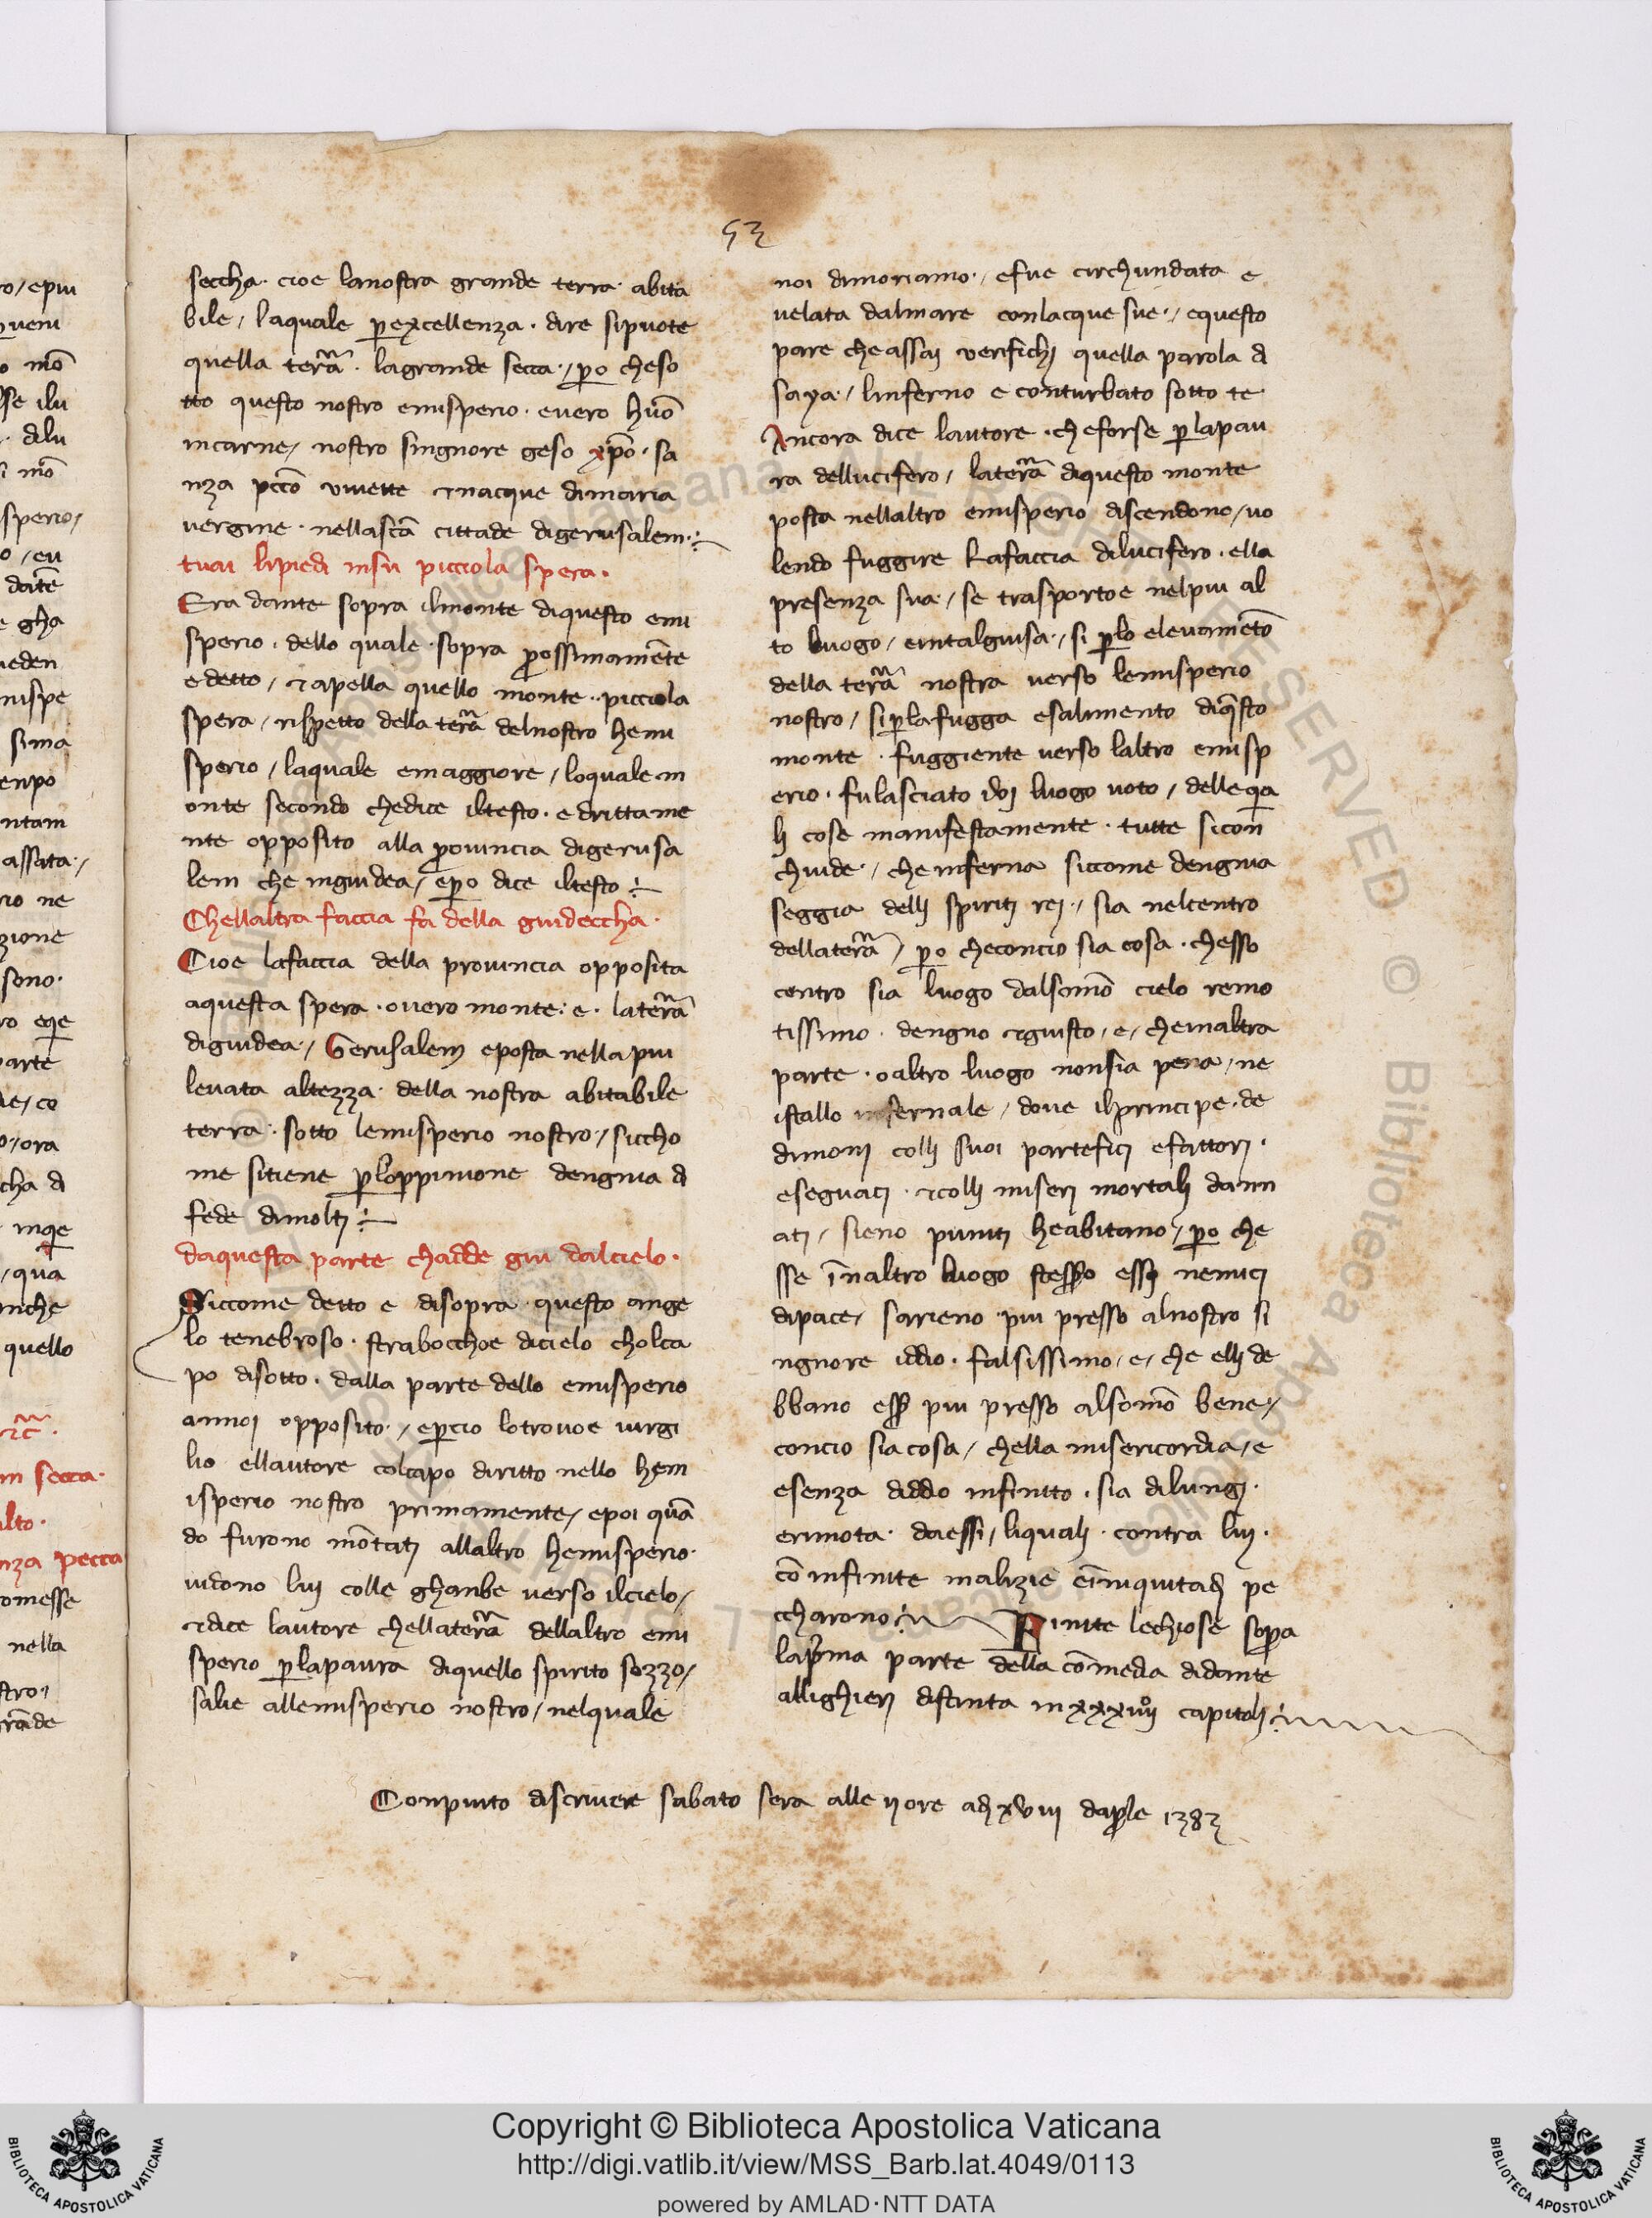 53
seccha· cioe lanostra grande terra· abita
bile / laquale p̱excellenza· dire sipuote
quella terr̃a· lagrande secca· / p̱o cheso
tto questo nostro emisperio· evero huõ
incarne / nostro singnore geso xp̃o· sa
nza pccõ vivette ⁊nacque dimaria
vergine· nellasctã cittade digerusalem·:~
tuai lipiedi insu picciola spera·
Era dante sopra ilmonte diquesto emi
sperio· dello quale· sopra prossimamẽte
edetto / ⁊apella quello monte·· picciola
spera / rispetto della terr̃a delnostro hemi
sperio / laquale emaggiore / loquale m
onte secondo chedice iltesto· edrittame
nte opposito alla provincia digerusa
lem che inguidea / ep̱o dice iltesto :~
Chellaltra faccia fa della guideccha·
Cioe lafaccia della provincia opposita
aquesta spera· overo monte: e· laterr̃a
diguidea· / Gerusalem eposta nella piu
levata altezza· della nostra abitabile
terra· sotto lemisperio nostro· / siccho
me sitiene p̱loppinione dengnia d
fede dimolti :~
daquesta parte chadde giu dalcielo·
Siccome detto e disopra· questo ange
lo tenebroso· strabocchoe dicielo cholca
po disotto· dalla parte dello emisperio
annoi opposito· / ep̱cio lotrovoe virgi
lio ellautore colcapo diritto nello hem
isperio nostro primamente / epoi quã
do furono mõtati allaltro hemisperio·
vidono lui colle ghanbe verso ilcielo /
⁊dice lautore chellaterr̃a dellaltro emi
sperio p̱lapaura diquello spirito sozzo /
salie allemisperio nostro / nelquale
noi dimoriamo· / efue circhundata e
velata dalmare conlacque sue· / equesto
pare cheassai verifichi quella parola d
saya· / linferno e conturbato sotto te
Ancora dice lautore· cheforse p̱lapau
ra dellucifero / laterr̃a diquesto monte
posta nellaltro emisperio discendono / vo
lendo fuggire lafaccia dilucifero· ella
presenza sua· / se trasportoe nelpiu al
to luogo / eintalguisa· / si p̱lo elevamẽto
della terr̃a nostra verso lemisperio
nostro / sip̱lafugga esalimento diq̃sto
monte· fuggiente verso laltro emisp
erio· fulasciato ivi luogo voto / delleqa
li cose manifestamente· tutte sicon
chiude· / cheinferna siccome dengnia
seggia delli spiriti rei· / sia nelcentro
dellaterr̃a / p̱o checoncio sia cosa· chesso
centro sia luogo dalsomõ cielo remo
tissimo· dengno ⁊giusto / e / cheinaltra
parte· oaltro luogo nonsia pena / ne
istallo infernale / dove ilprincipe· de
dimoni colli suoi partefici efattori·
eseguaci· ⁊colli miseri mortali dann
ati / sieno puniti heabitano / p̱o che
sse ĩnaltro luogo stesso essi nemici
dipace / sarieno· piu presso alnostro si
ngnore iddio· falsissimo / e / che elli de
bbano esse piu presso alsomõ bene· /
concio siacosa / chella misericordia / e
esenza diddio infinito· sia dilungi·
erimota· daessi / liquali· contra lui·
cõ infinite malizie eĩniquitadi pe
ccharono :~ Finite lechiose sopra
laprima parte della cõmedia didante
allighieri distinta inxxxiiii° capitoli :~
Conpiuto discrivere sabato sera alle ii ore adi xviii daprile 1383
Copyright © Biblioteca Apostolica Vaticana
http://digi.vatlib.it/view/MSS_Barb.lat.4049/0113
powered by AMLAD·NTT DATA
BIBLIOTECA APOSTOLICA VATICANA
BIBLIOTECA APOSTOLICA VATICANA